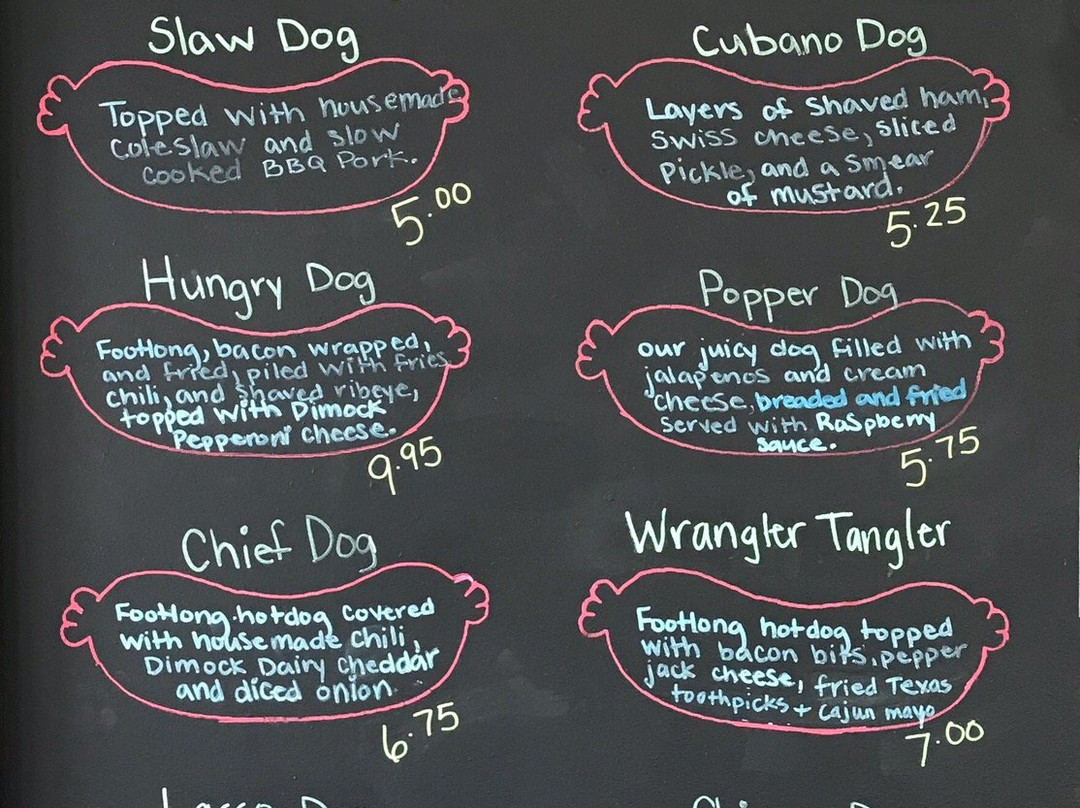 Slaw Dog
Topped with housemade
coleslaw and slow
cooked BBQ Pork.
5.00
Cubano Dog
Layers of shaved ham,
swiss cheese, sliced
Pickle, and a smear
of mustard.
5.25
Hungry Dog
Footlong, bacon wrapped,
and fried, piled with fries
chili, and shaved ribeye,
topped with Dimock
Pepperoni cheese.
9.95
Popper Dog
our juicy dog filled with
jalapenos and cream
cheese, breaded and fried
served with Raspberry
sauce.
5.75
Chief Dog
Footlong hotdog covered
with housemade chili,
Dimock Dairy cheddar
and diced onion
6.75
Wrangler Tangler
Footlong hotdog topped
with bacon bits, pepper
jack cheese, fried Texas
toothpicks + cajun mayo
7.00